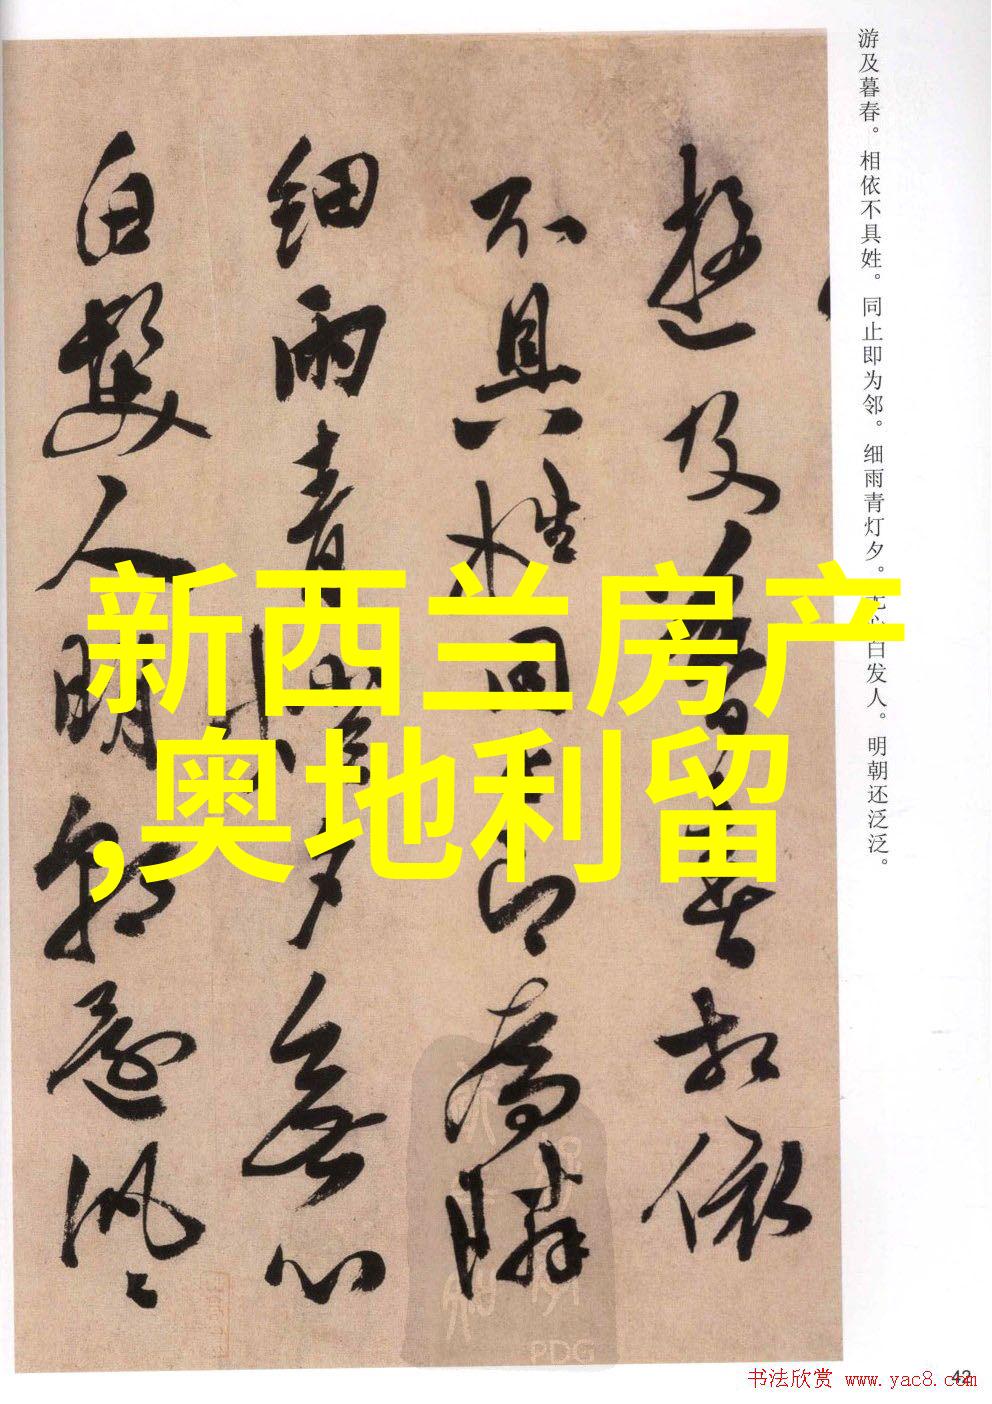 游及暮春。相依不具姓。同止即为邻。细雨青灯夕。无心白发人。明朝还泛泛。
遊及暮春相依
不具姓同止即為隣
細雨青燈夕無心
白髮人明朝還汎汎
新西兰房产
,奥地利留
PDG
书法欣赏 www.yac8.com
42